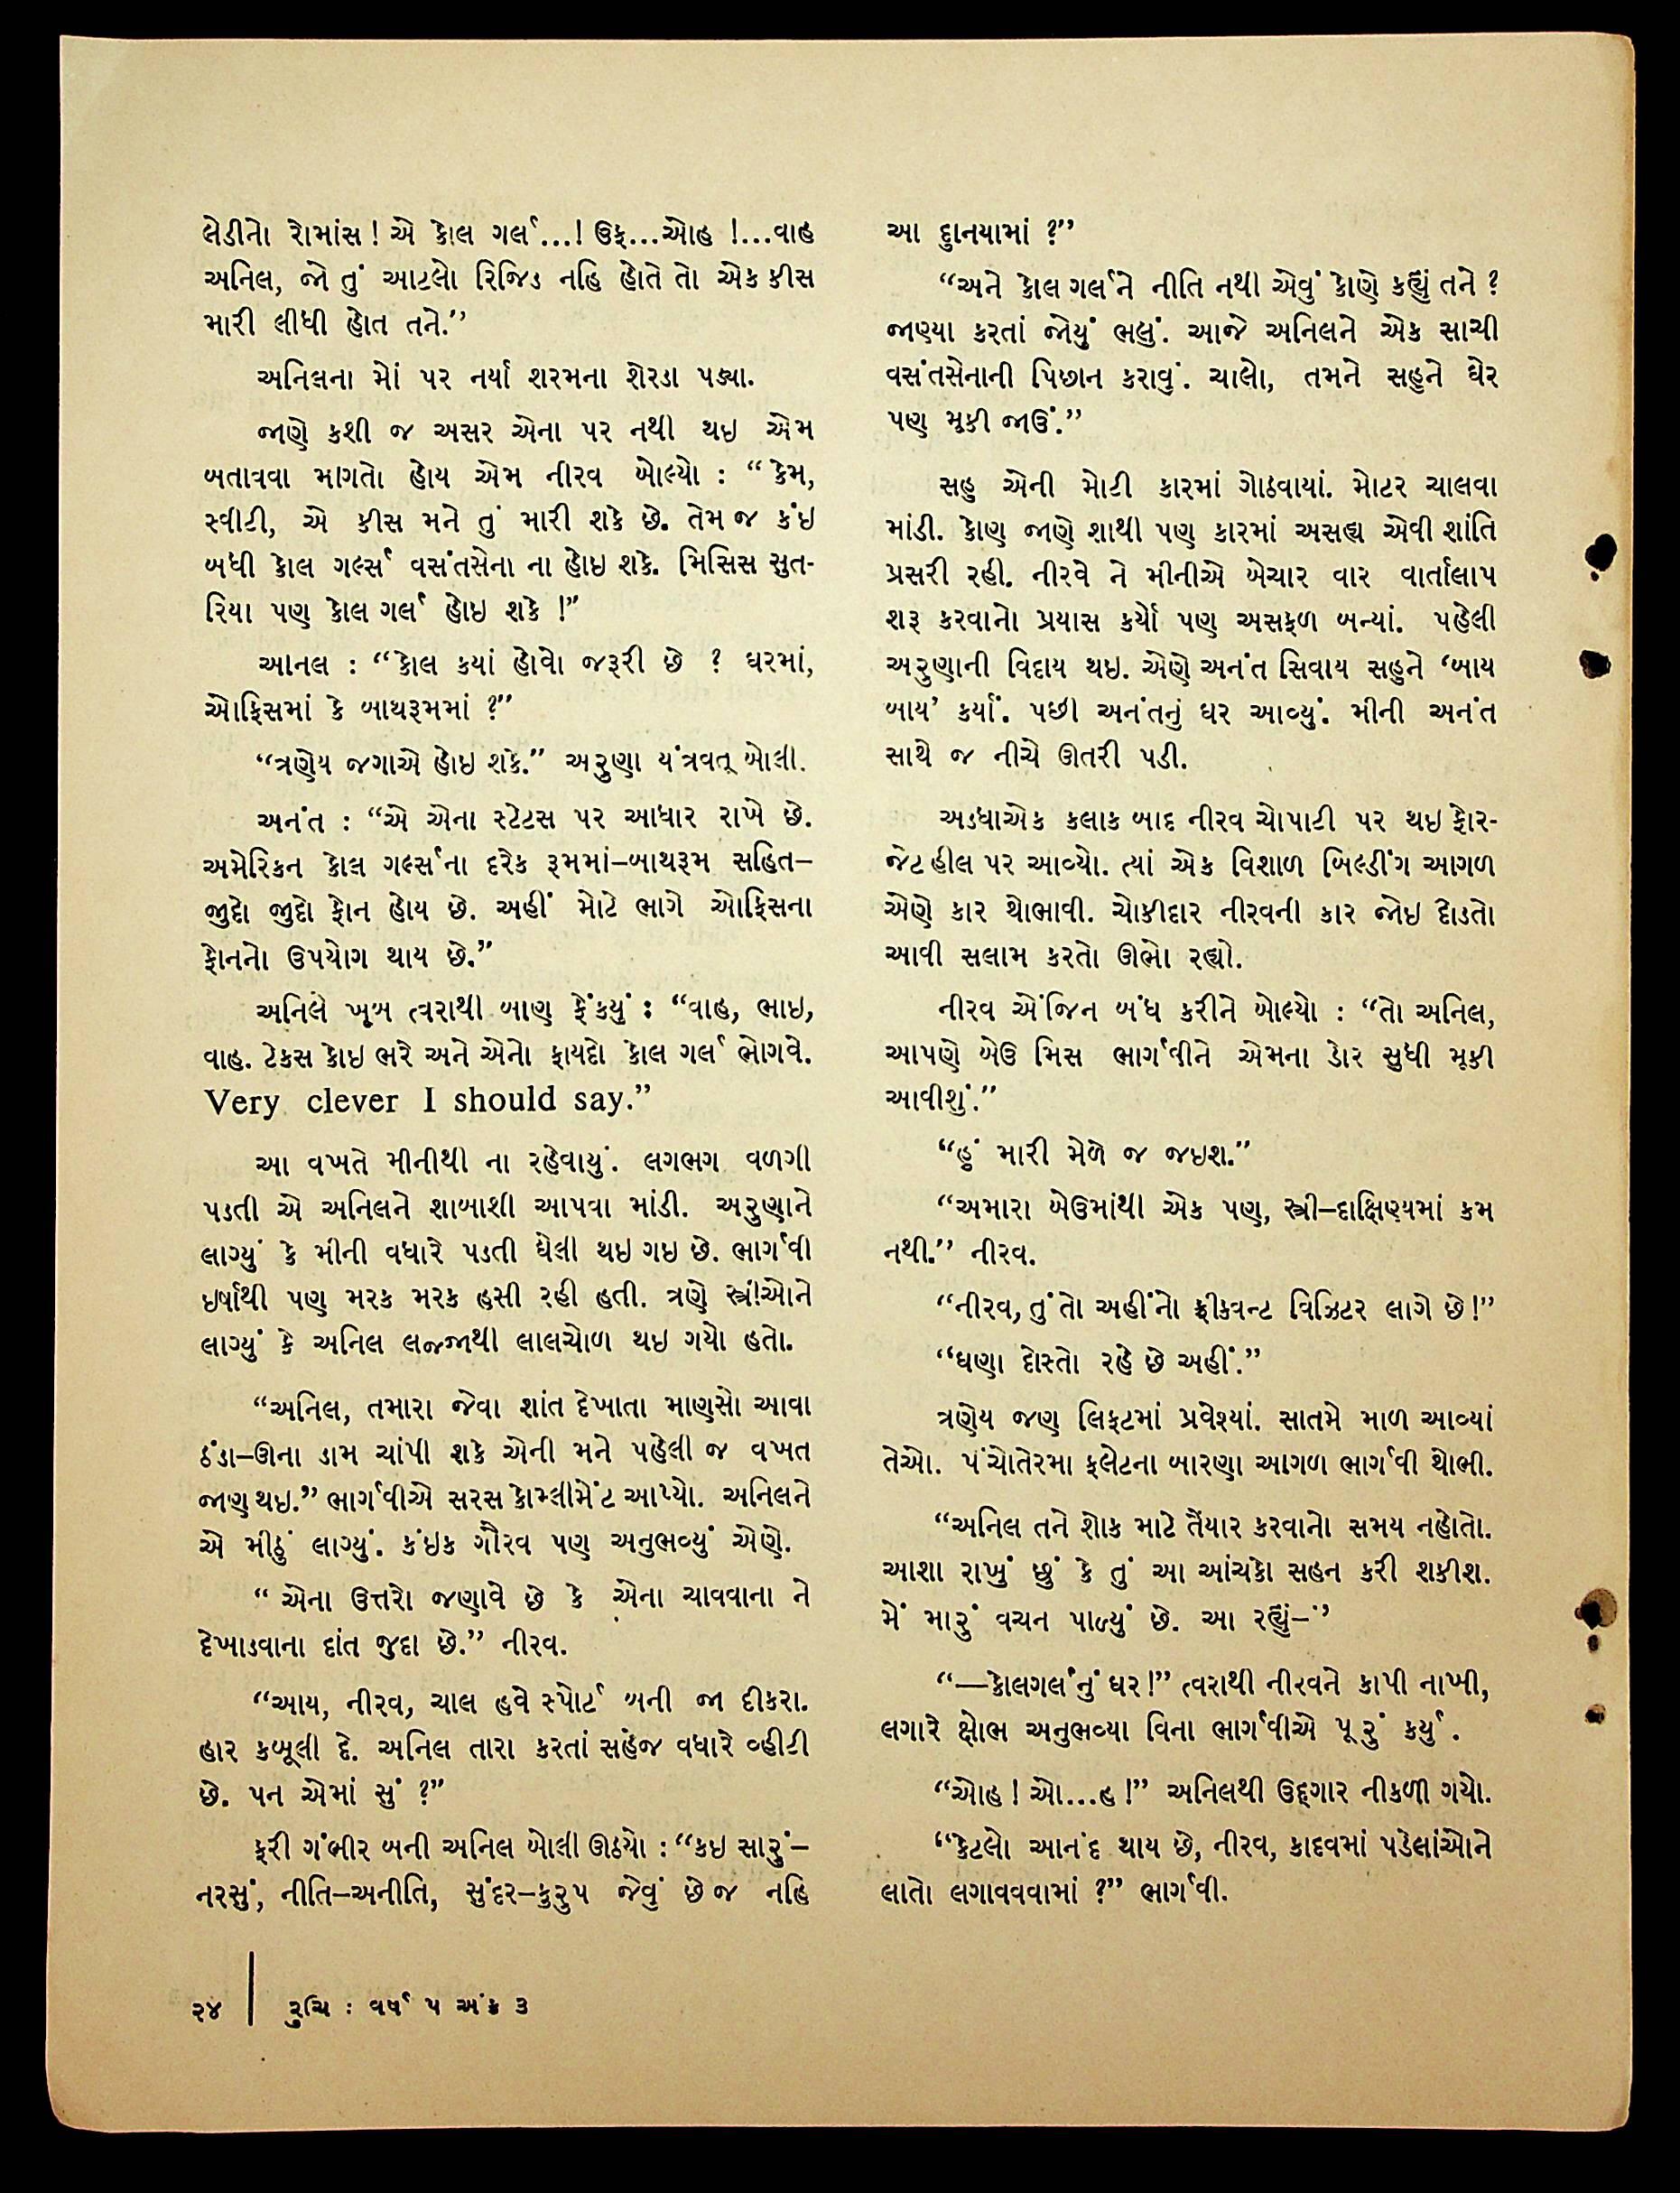 લેડીનો રોમાંસ! એ કોલ ગર્લ...! ઉફ...ઓહ !...વાહ
અનિલ, જો તું આટલો રિજિડ નહિ હોતે તો એક કીસ
મારી લીધી હોત તને.”
અનિલના મોં પર નર્યા શરમના શેરડા પડ્યા.
જાણે કશી જ અસર એના પર નથી થઇ એમ
બતાવવા માગતો હોય એમ નીરવ બોલ્યો : “ કેમ,
સ્વીટી, એ કીસ મને તું મારી શકે છે. તેમ જ કંઇ
બધી કોલ ગર્લ્સ વસંતસેના ના હોઇ શકે. મિસિસ સુત-
રિયા પણ કોલ ગર્લ હોઇ શકે !”
આનલ : “કોલ કયાં હોવો જરૂરી છે ? ઘરમાં,
ઓફિસમાં કે બાથરૂમમાં ?”
“ત્રણેય જગાએ હોઇ શકે.” અરુણા યંત્રવત્ બોલી.
અનંત : “એ એના સ્ટેટસ પર આધાર રાખે છે.
અમેરિકન કોલ ગર્લ્સના દરેક રૂમમાં–બાથરૂમ સહિત–
જુદો જુદો ફોન હોય છે. અહીં મોટે ભાગે ઓફિસના
ફોનનો ઉપયોગ થાય છે.”
અનિલે ખૂબ ત્વરાથી બાણ ફેંકયું : “વાહ, ભાઇ,
વાહ. ટેકસ કોઇ ભરે અને એનો ફાયદો કોલ ગર્લ ભોગવે.
Very clever I should say.”
આ વખતે મીનીથી ના રહેવાયું. લગભગ વળગી
પડતી એ અનિલને શાબાશી આપવા માંડી. અરુણાને
લાગ્યું કે મીની વધારે પડતી ઘેલી થઇ ગઇ છે. ભાર્ગવી
ઇર્ષાથી પણ મરક મરક હસી રહી હતી. ત્રણે સ્ત્રીઓને
લાગ્યું કે અનિલ લજ્જાથી લાલચોળ થઇ ગયો હતો.
“અનિલ, તમારા જેવા શાંત દેખાતા માણસો આવા
ઠંડા–ઊના ડામ ચાંપી શકે એની મને પહેલી જ વખત
જાણ થઇ.” ભાર્ગવીએ સરસ કોમ્લીમેંટ આપ્યો. અનિલને
એ મીઠું લાગ્યું. કંઇક ગૌરવ પણ અનુભવ્યું એણે.
“ એના ઉત્તરો જણાવે છે કે એના ચાવવાના ને
દેખાડવાના દાંત જુદા છે.” નીરવ.
“આય, નીરવ, ચાલ હવે સ્પોર્ટ બની જા દીકરા.
હાર કબૂલી દે. અનિલ તારા કરતાં સહેજ વધારે વ્હીટી
છે. પન એમાં સું ?”
ફરી ગંભીર બની અનિલ બોલી ઊઠયો : “કઇ સારું–
નરસું, નીતિ–અનીતિ, સુંદર–કુરુપ જેવું છે જ નહિ
આ દુાનયામાં ?”
“અને કોલ ગર્લને નીતિ નથી એવું કોણે કહ્યું તને ?
જાણ્યા કરતાં જોયું ભલું. આજે અનિલને એક સાચી
વસંતસેનાની પિછાન કરાવું. ચાલો, તમને સહુને ઘેર
પણ મૂકી જાઉં.”
સહુ એની મોટી કારમાં ગોઠવાયાં. મોટર ચાલવા
માંડી. કોણ જાણે શાથી પણ કારમાં અસહ્ય એવી શાંતિ
પ્રસરી રહી. નીરવે ને મીનીએ બેચાર વાર વાર્તાલાપ
શરૂ કરવાનો પ્રયાસ કર્યો પણ અસફળ બન્યાં. પહેલી
અરુણાની વિદાય થઇ. એણે અનંત સિવાય સહુને ‘બાય
બાય’ કર્યાં. પછી અનંતનું ઘર આવ્યું. મીની અનંત
સાથે જ નીચે ઊતરી પડી.
અડધાએક કલાક બાદ નીરવ ચોપાટી પર થઇ ફોર-
જેટ હીલ પર આવ્યો. ત્યાં એક વિશાળ બિલ્ડીંગ આગળ
એણે કાર થોભાવી. ચોકીદાર નીરવની કાર જોઇ દોડતો
આવી સલામ કરતો ઊભો રહ્યો.
નીરવ એંજિન બંધ કરીને બોલ્યો : “તો અનિલ,
આપણે બેઉ મિસ ભાર્ગવીને એમના ડોર સુધી મૂકી
આવીશું.”
“હું મારી મેળે જ જઇશ.”
“અમારા બેઉમાંથી એક પણ, સ્ત્રી–દાક્ષિણ્યમાં કમ
નથી.” નીરવ.
“નીરવ, તું તો અહીંનો ફ્રીકવન્ટ વિઝિટર લાગે છે!”
“ઘણા દોસ્તો રહે છે અહીં.”
ત્રણેય જણ લિફ્ટમાં પ્રવેશ્યાં. સાતમે માળ આવ્યાં
તેઓ. પંચોતેરમા ફ્લેટના બારણા આગળ ભાર્ગવી થોભી.
“અનિલ તને શોક માટે તૈંયાર કરવાનો સમય નહોતો.
આશા રાખું છું કે તું આ આંચકો સહન કરી શકીશ.
મેં મારું વચન પાળ્યું છે. આ રહ્યું–”
“—કોલગર્લનું ઘર!” ત્વરાથી નીરવને કાપી નાખી,
લગારે ક્ષોભ અનુભવ્યા વિના ભાર્ગવીએ પૂરું કર્યું.
“ઓહ! ઓ...હ!” અનિલથી ઉદ્ગાર નીકળી ગયો.
“કેટલો આનંદ થાય છે, નીરવ, કાદવમાં પડેલાંઓને
લાતો લગાવવવામાં ?” ભાર્ગવી.
૨૪ | રુચિ : વર્ષ ૫ અંક ૩